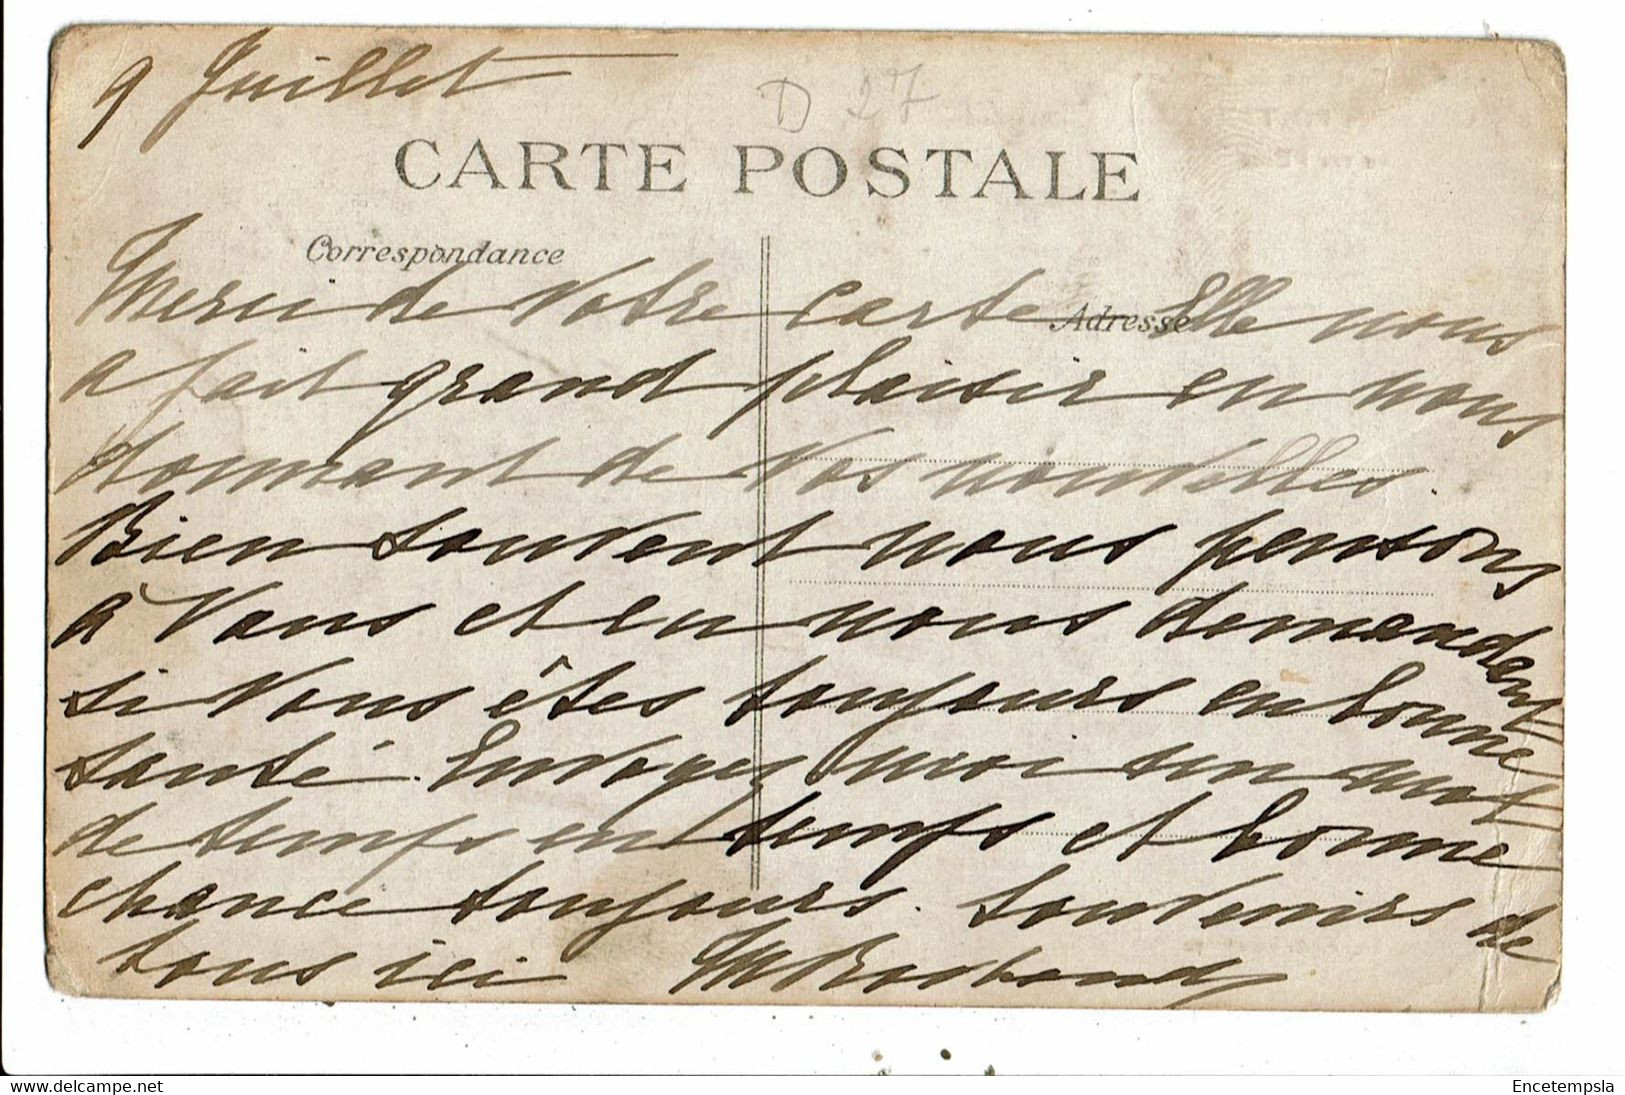 9 Juillet
D 27
CARTE POSTALE
Correspondance
Adresse
Merci de Votre carte Elle nous
a fait grand plaisir en nous
donnant de Vos nouvelles.
Bien souvent nous pensons
à Vous et en nous demandent
si Vous êtes toujours en bonne
santé. Envoyez moi un mot
de temps en temps et bonne
chance toujours. Souvenirs de
tous ici M
Encetempsla